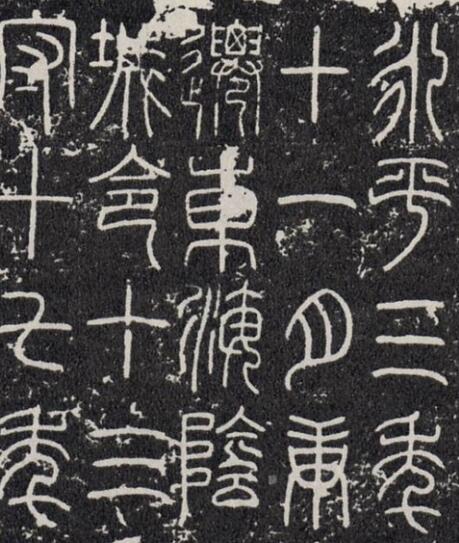 永平三年
十一月庚
遷東海陰
城令十三
守十七年